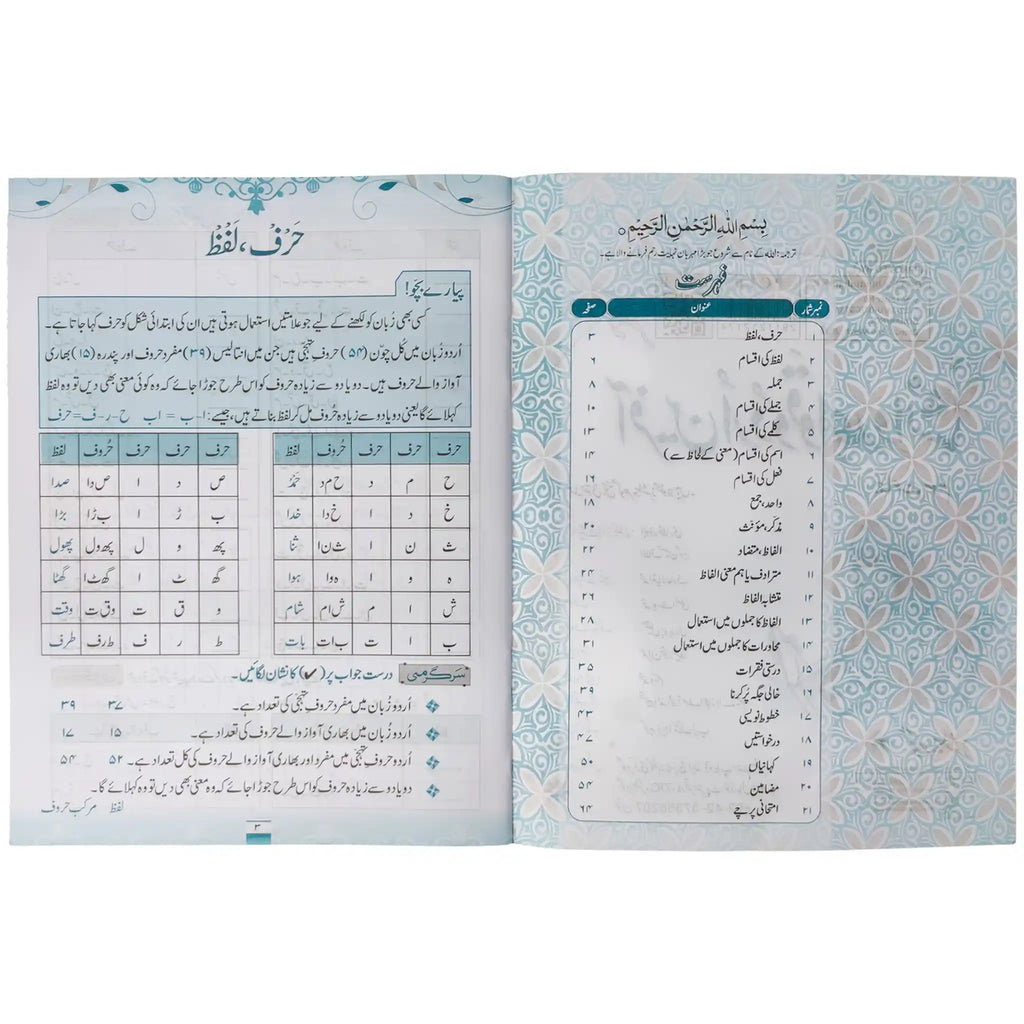 بِسْمِ اللهِ الرَّحْمٰنِ الرَّحِيْمِ
ترجمہ: اللہ کے نام سے شروع جو بڑا مہربان نہایت رحم فرمانے والا ہے۔
فہرست
نمبر شمار عنوان صفحہ
۱ حرف، لفظ ۳
۲ لفظ کی اقسام ۶
۳ جملہ ۸
۴ جملے کی اقسام ۱۰
۵ کلمے کی اقسام ۱۳
۶ اسم کی اقسام (معنی کے لحاظ سے) ۱۴
۷ فعل کی اقسام ۱۶
۸ واحد، جمع ۱۸
۹ مذکر، مؤنث ۲۰
۱۰ الفاظ، متضاد ۲۲
۱۱ مترادف یا ہم معنی الفاظ ۲۴
۱۲ متشابہ الفاظ ۲۶
۱۳ الفاظ کا جملوں میں استعمال ۲۸
۱۴ محاورات کا جملوں میں استعمال ۳۱
۱۵ درستی فقرات ۳۵
۱۶ خالی جگہ پُر کرنا ۳۹
۱۷ خطوط نویسی ۴۳
۱۸ درخواستیں ۴۷
۱۹ کہانیاں ۵۰
۲۰ مضامین ۵۴
۲۱ امتحانی پرچے ۶۴
حَرْف، لَفْظ
پیارے بچو!
کسی بھی زُبان کو لکھنے کے لیے جو علامتیں استعمال ہوتی ہیں ان کی ابتدائی شکل کو حرف کہا جاتا ہے۔
اُردو زُبان میں کُل چوّن (۵۴) حروفِ تہجّی ہیں جن میں انتالیس (۳۹) مفرد حروف اور پندرہ (۱۵) بھاری
آواز والے حروف ہیں۔ دو یا دو سے زیادہ حروف کو اس طرح جوڑا جائے کہ وہ کوئی معنی بھی دیں تو وہ لفظ
کہلائے گا یعنی دو یا دو سے زیادہ حُروف مل کر لفظ بناتے ہیں، جیسے: ا-ب = اب ح-ر-ف=حرف
حرف حرف حرف حُروف لفظ
ح م د ح م د حَمْد
خ د ا خ د ا خدا
ث ن ا ث ن ا ثنا
ہ و ا ہ و ا ہوا
ش ا م ش ا م شام
ب ا ت ب ا ت بات
حرف حرف حرف حُروف لفظ
ص د ا ص د ا صدا
ب ڑ ا ب ڑ ا بڑا
پھ و ل پھ و ل پھول
گھ ٹ ا گھ ٹ ا گھٹا
و ق ت و ق ت وقت
ط ر ف ط ر ف طرف
سرگرمی درست جواب پر (✔) کا نشان لگائیں۔
اُردو زُبان میں مفرد حروفِ تہجّی کی تعداد ہے۔ ۳۷ ۳۹
اُردو زُبان میں بھاری آواز والے حروف کی تعداد ہے۔ ۱۵ ۱۷
اُردو حروفِ تہجّی میں مفرد اور بھاری آواز والے حروف کی کل تعداد ہے۔ ۵۲ ۵۴
دو یا دو سے زیادہ حروف کو اس طرح جوڑا جائے کہ وہ معنی بھی دیں تو وہ کہلائے گا۔
لفظ مرکب حروف
۳